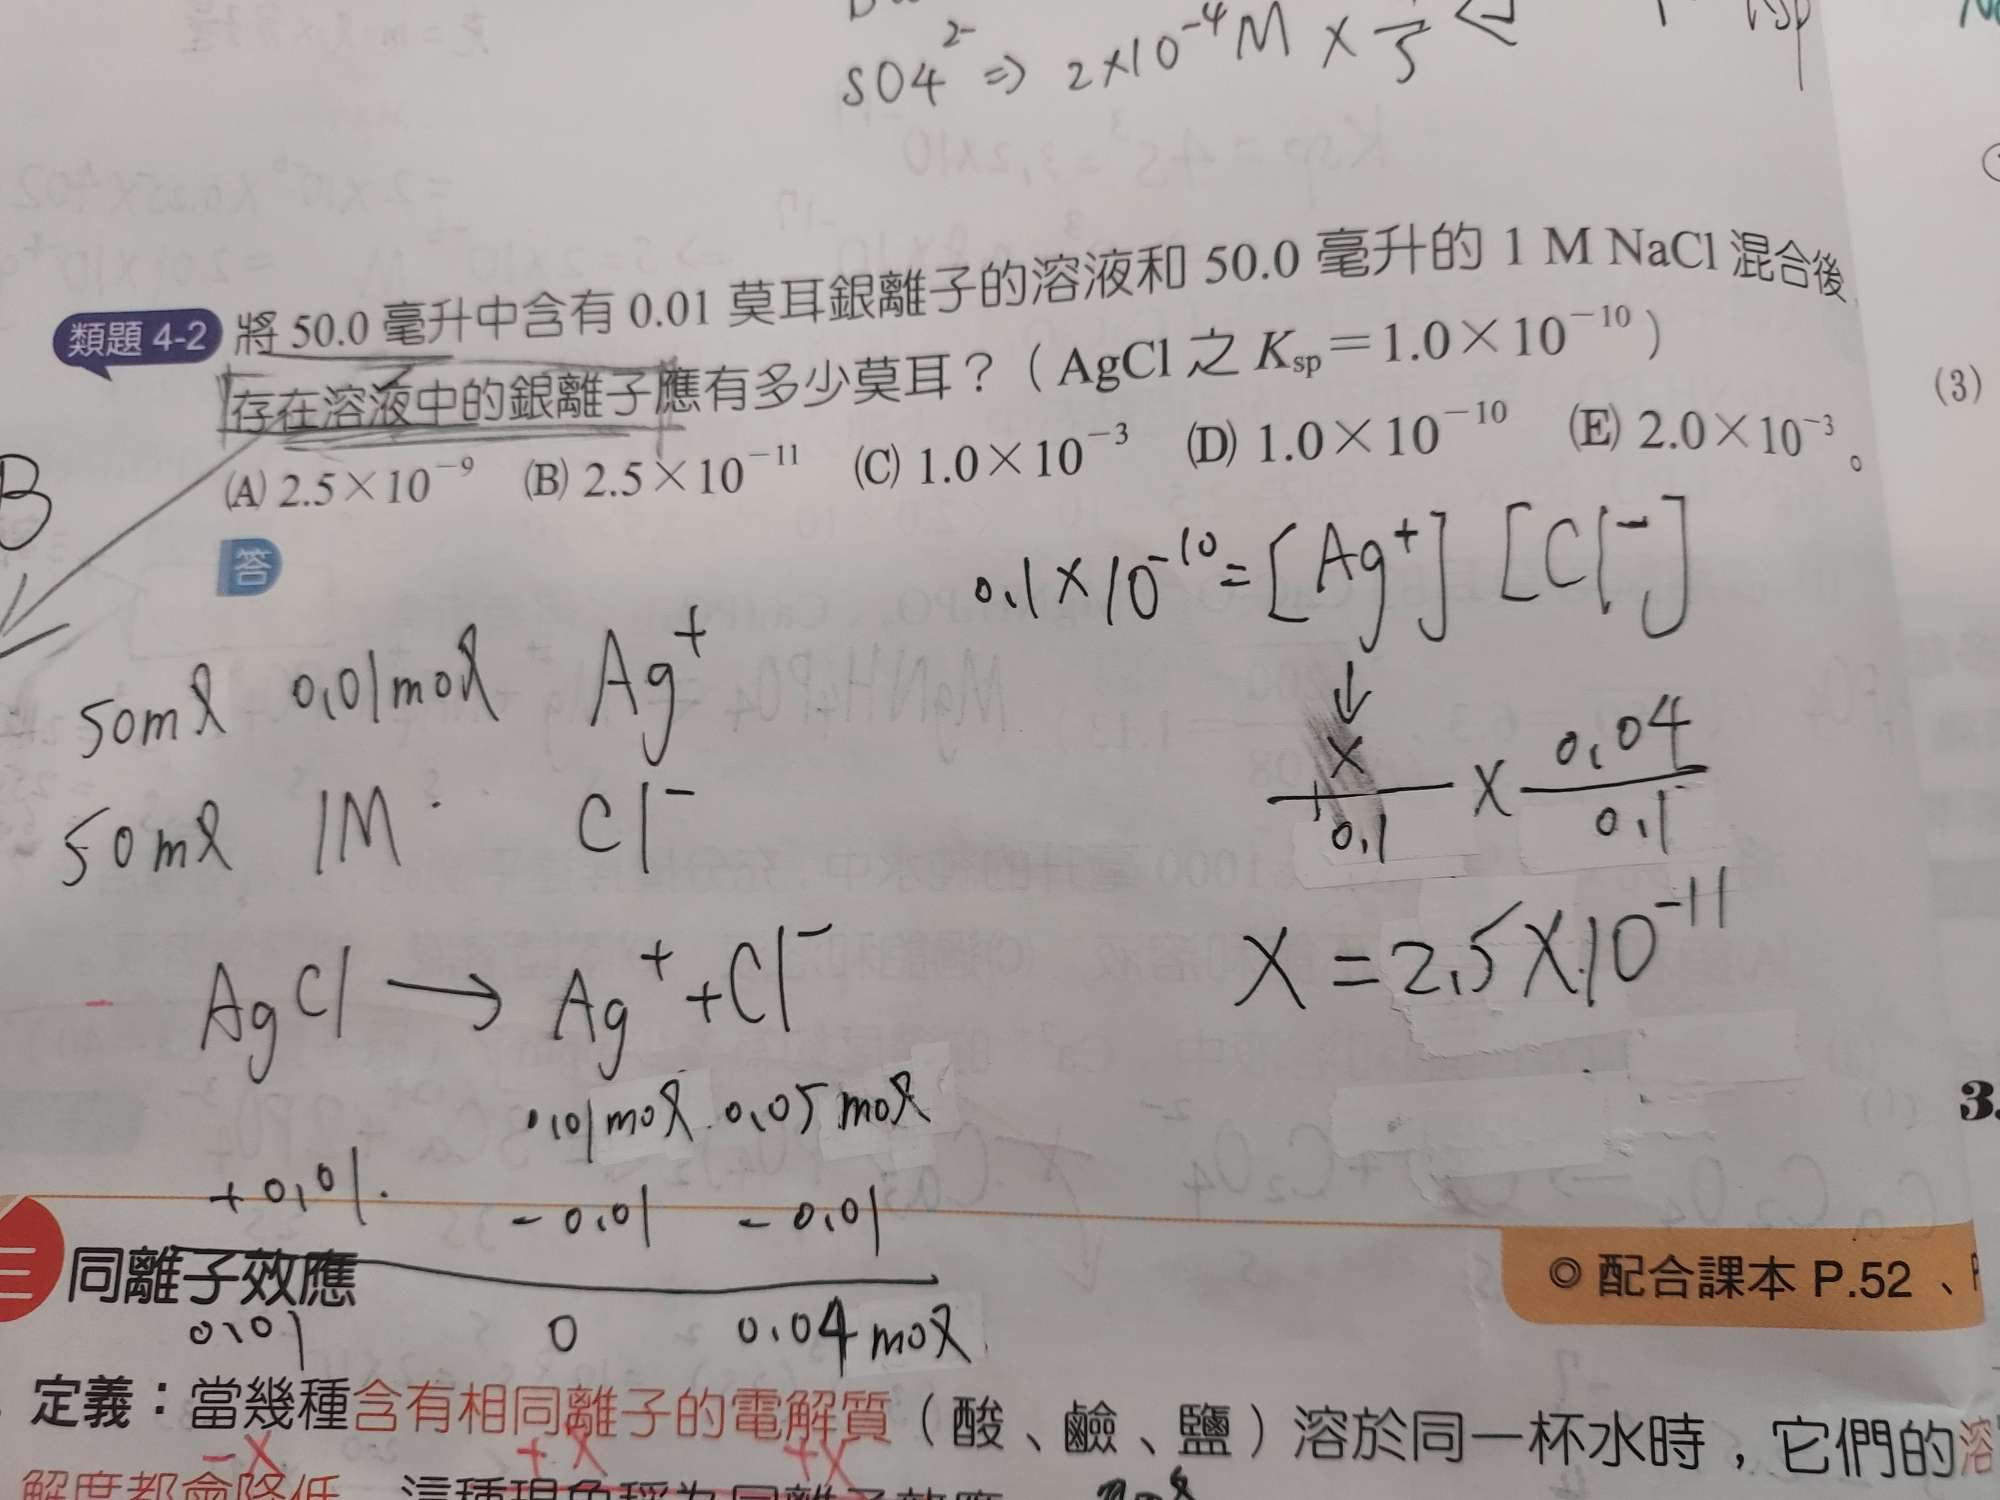 SO4²⁻ ⇒ 2×10⁻⁴M ×
類題 4-2 將 50.0 毫升中含有 0.01 莫耳銀離子的溶液和 50.0 毫升的 1 M NaCl 混合後
存在溶液中的銀離子應有多少莫耳？（AgCl 之 Ksp＝1.0×10⁻¹⁰）
(A) 2.5×10⁻⁹ (B) 2.5×10⁻¹¹ (C) 1.0×10⁻³ (D) 1.0×10⁻¹⁰ (E) 2.0×10⁻³。
B
答
50ml 0.01mol Ag⁺
50ml 1M Cl⁻
AgCl → Ag⁺+Cl⁻
0.01mol 0.05mol
+0.01 -0.01 -0.01
0.01 0 0.04mol
0.1×10⁻¹⁰=[Ag⁺][Cl⁻]
↓
x/0.1 × 0.04/0.1
X=2.5×10⁻¹¹
(3)
3.
三 同離子效應
◎配合課本 P.52、
定義：當幾種含有相同離子的電解質（酸、鹼、鹽）溶於同一杯水時，它們的溶
-x +x +x
解度都會降低，這種現象稱為同離子效應